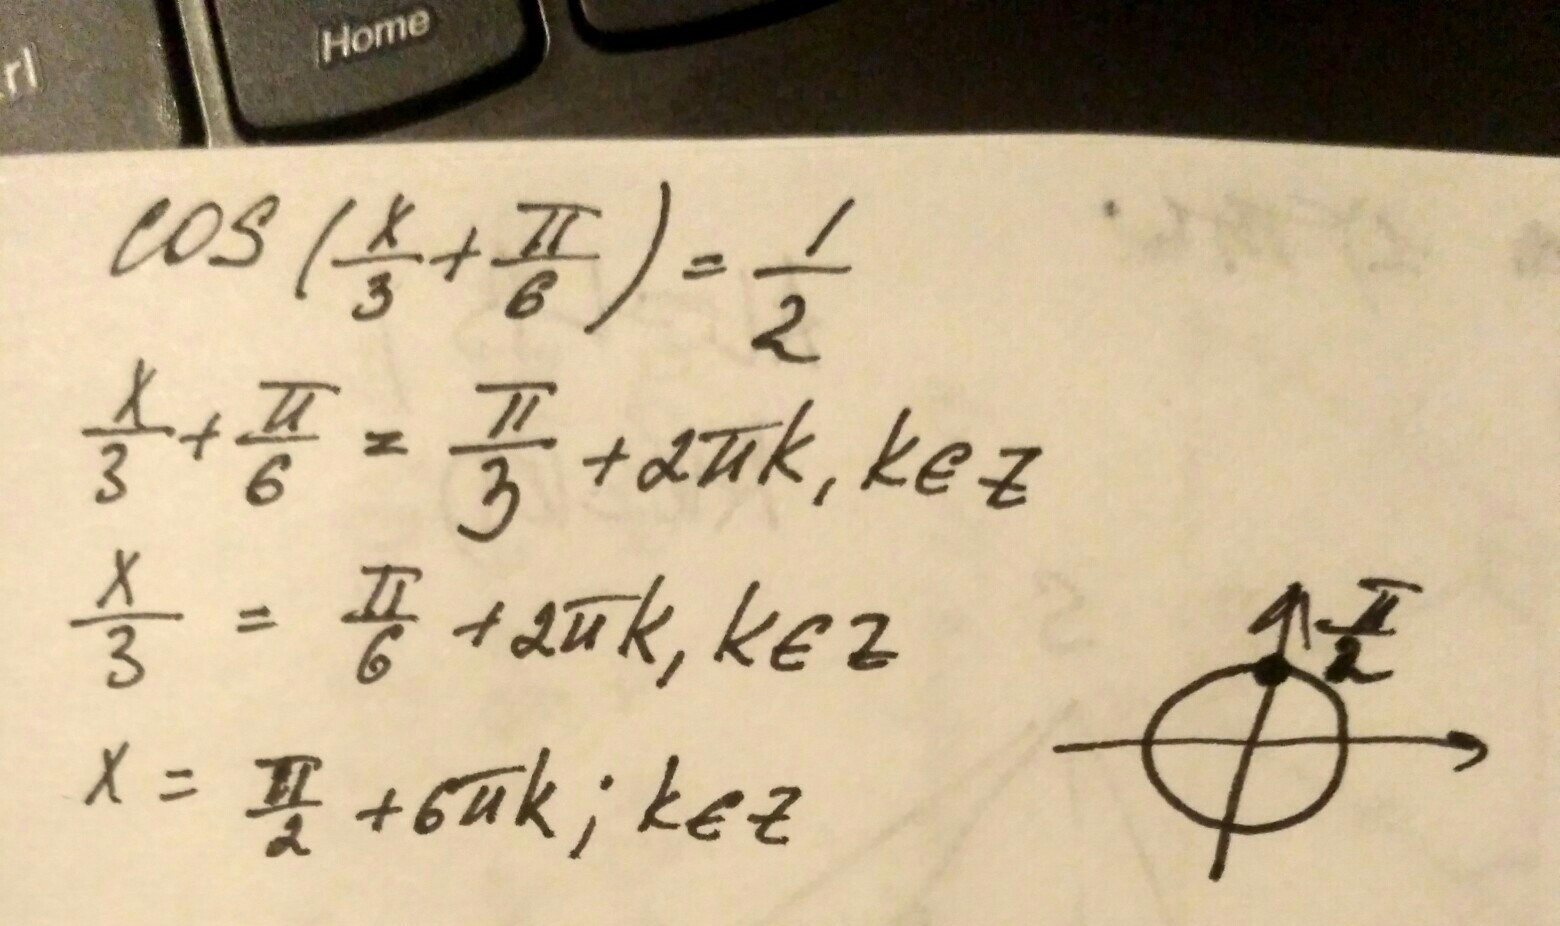 rl
Home
cos(x/3 + π/6) = 1/2
x/3 + π/6 = π/3 + 2πk, k ∈ z
x/3 = π/6 + 2πk, k ∈ z
x = π/2 + 6πk; k ∈ z
π/2